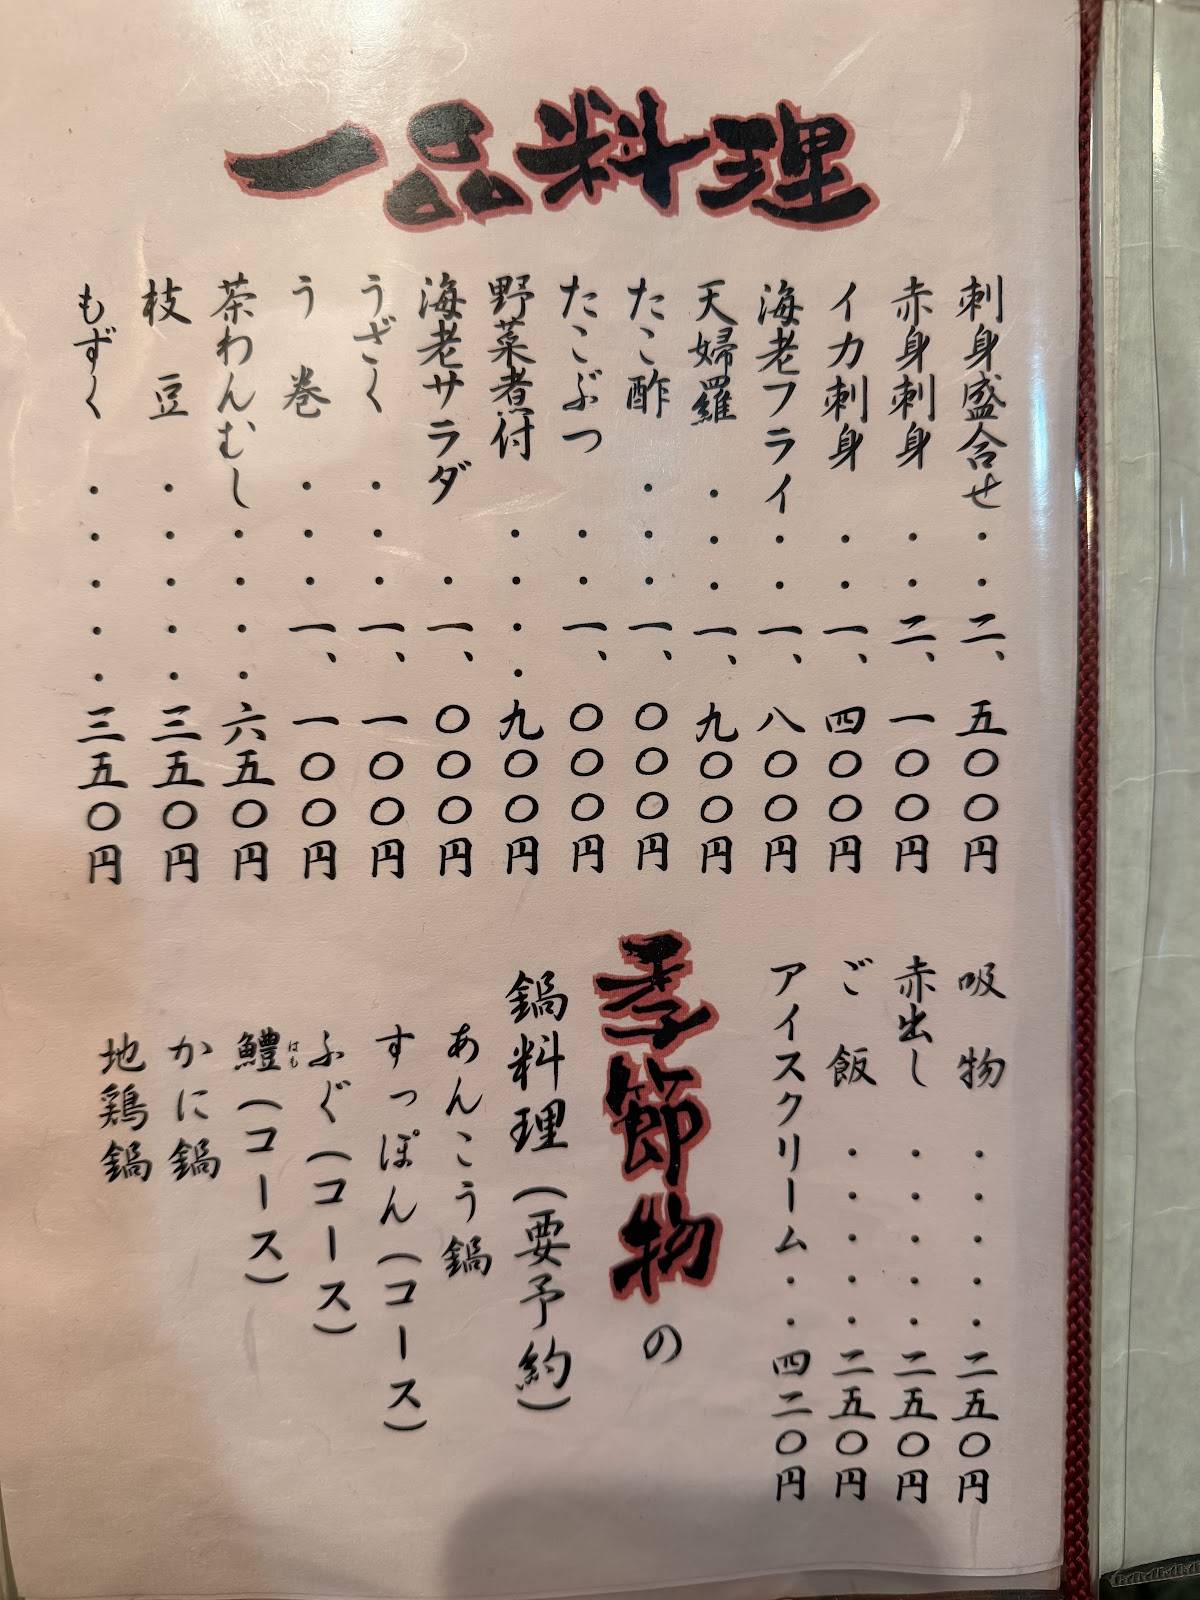 一品料理
刺身盛合せ・・二、五〇〇円
赤身刺身・・二、一〇〇円
イカ刺身・・一、四〇〇円
海老フライ・・一、八〇〇円
天婦羅・・・一、九〇〇円
たこ酢・・・一、〇〇〇円
たこぶつ・・一、〇〇〇円
野菜煮付・・・・九〇〇円
海老サラダ・一、〇〇〇円
うざく・・・一、一〇〇円
う巻・・・一、一〇〇円
茶わんむし・・・・六五〇円
枝豆・・・・・三五〇円
もずく・・・・・三五〇円
吸物・・・・・二五〇円
赤出し・・・・・二五〇円
ご飯・・・・・二五〇円
アイスクリーム・・四二〇円
季節物の
鍋料理(要予約)
あんこう鍋
すっぽん(コース)
ふぐ(コース)
鱧(コース)
はも
かに鍋
地鶏鍋